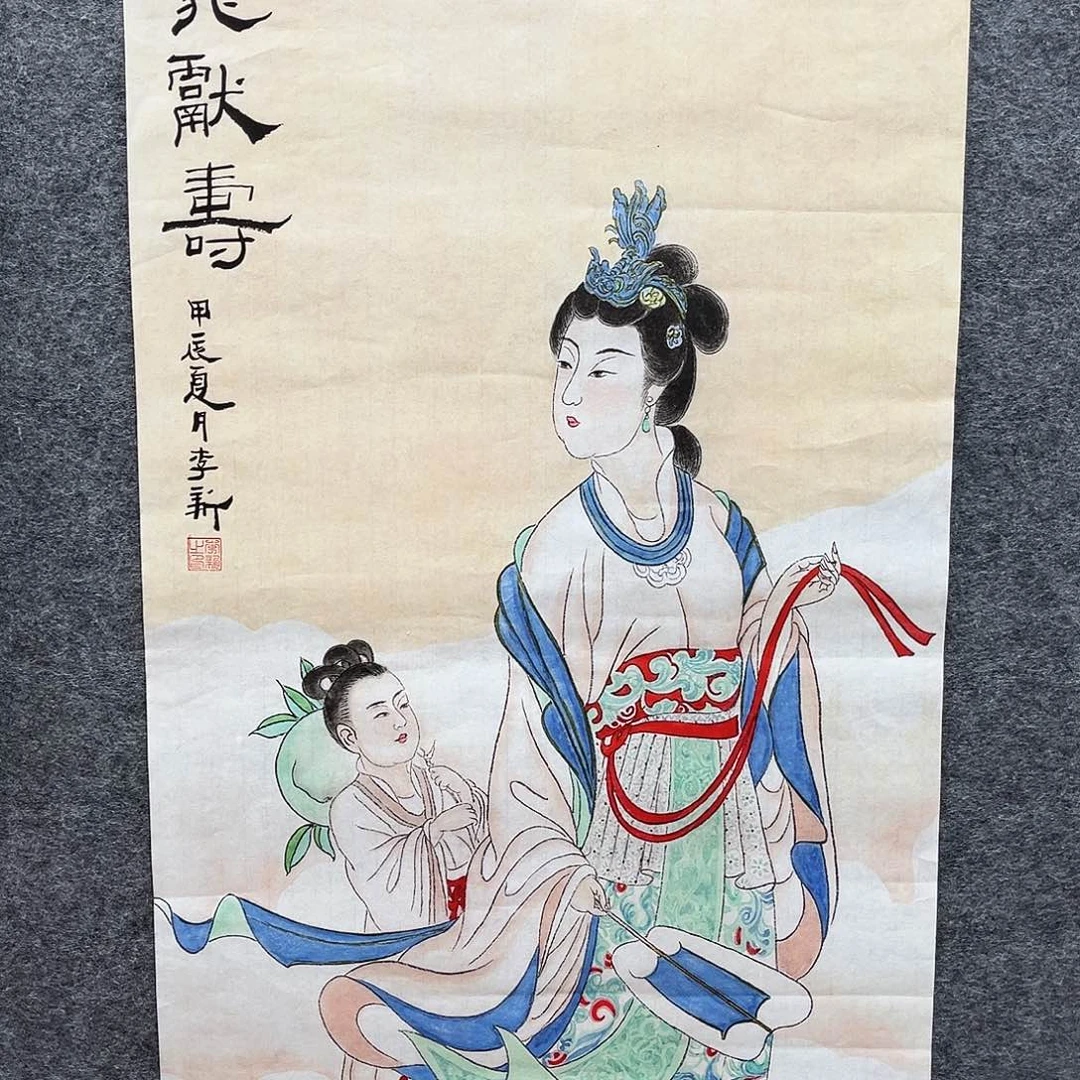 獻壽
甲辰夏月李新